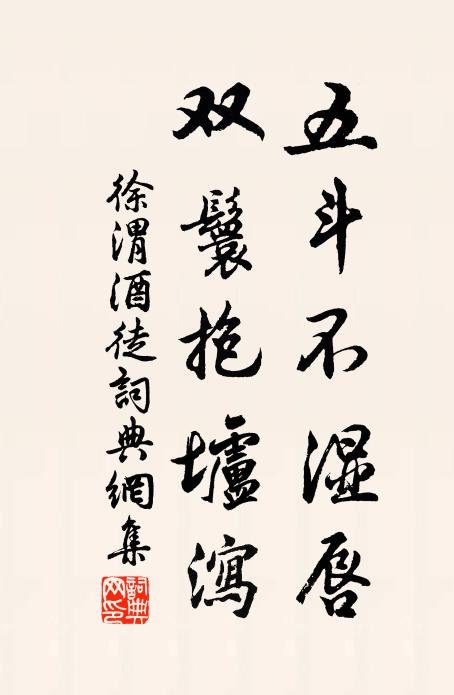 五斗不湿唇
双鬟抱壚瀉
徐渭酒徒詞典網集
詞典网印